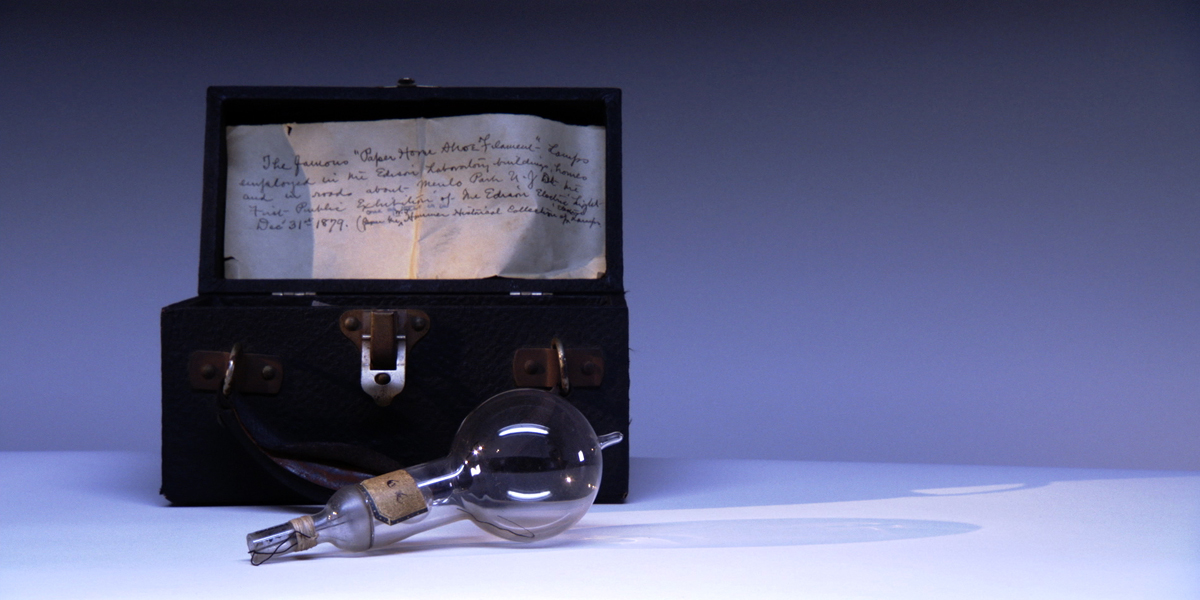 The famous "Paper Horse Shoe Filament" Lamps
employed in the Edison Laboratory, buildings, homes
and in roads about Menlo Park N-J at the
First Public Exhibition of the Edison Electric Light
Dec 31st 1879. (from the Hammer Historical Collection of Lamps